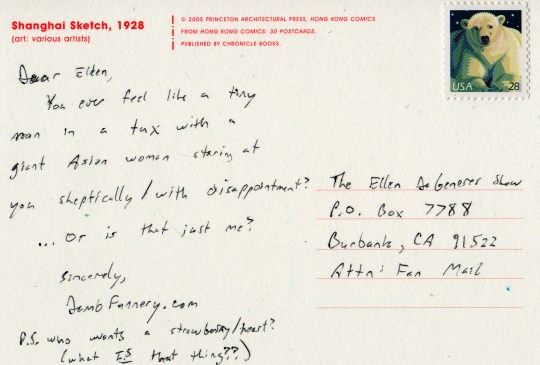 Shanghai Sketch, 1928
(art: various artists)
© 2005 PRINCETON ARCHITECTURAL PRESS, HONG KONG COMICS
FROM HONG KONG COMICS: 30 POSTCARDS.
PUBLISHED BY CHRONICLE BOOKS.
USA 28
Dear Ellen,
You ever feel like a tiny
man in a tux with a
giant Asian woman staring at
you skeptically/with disappointment?
... or is that just me?
sincerely,
DumbFunnery.com
P.S. who wants a strawberry/heart?
(what IS that thing??)
The Ellen DeGeneres Show
P.O. Box 7788
Burbank, CA 91522
Attn: Fan Mail